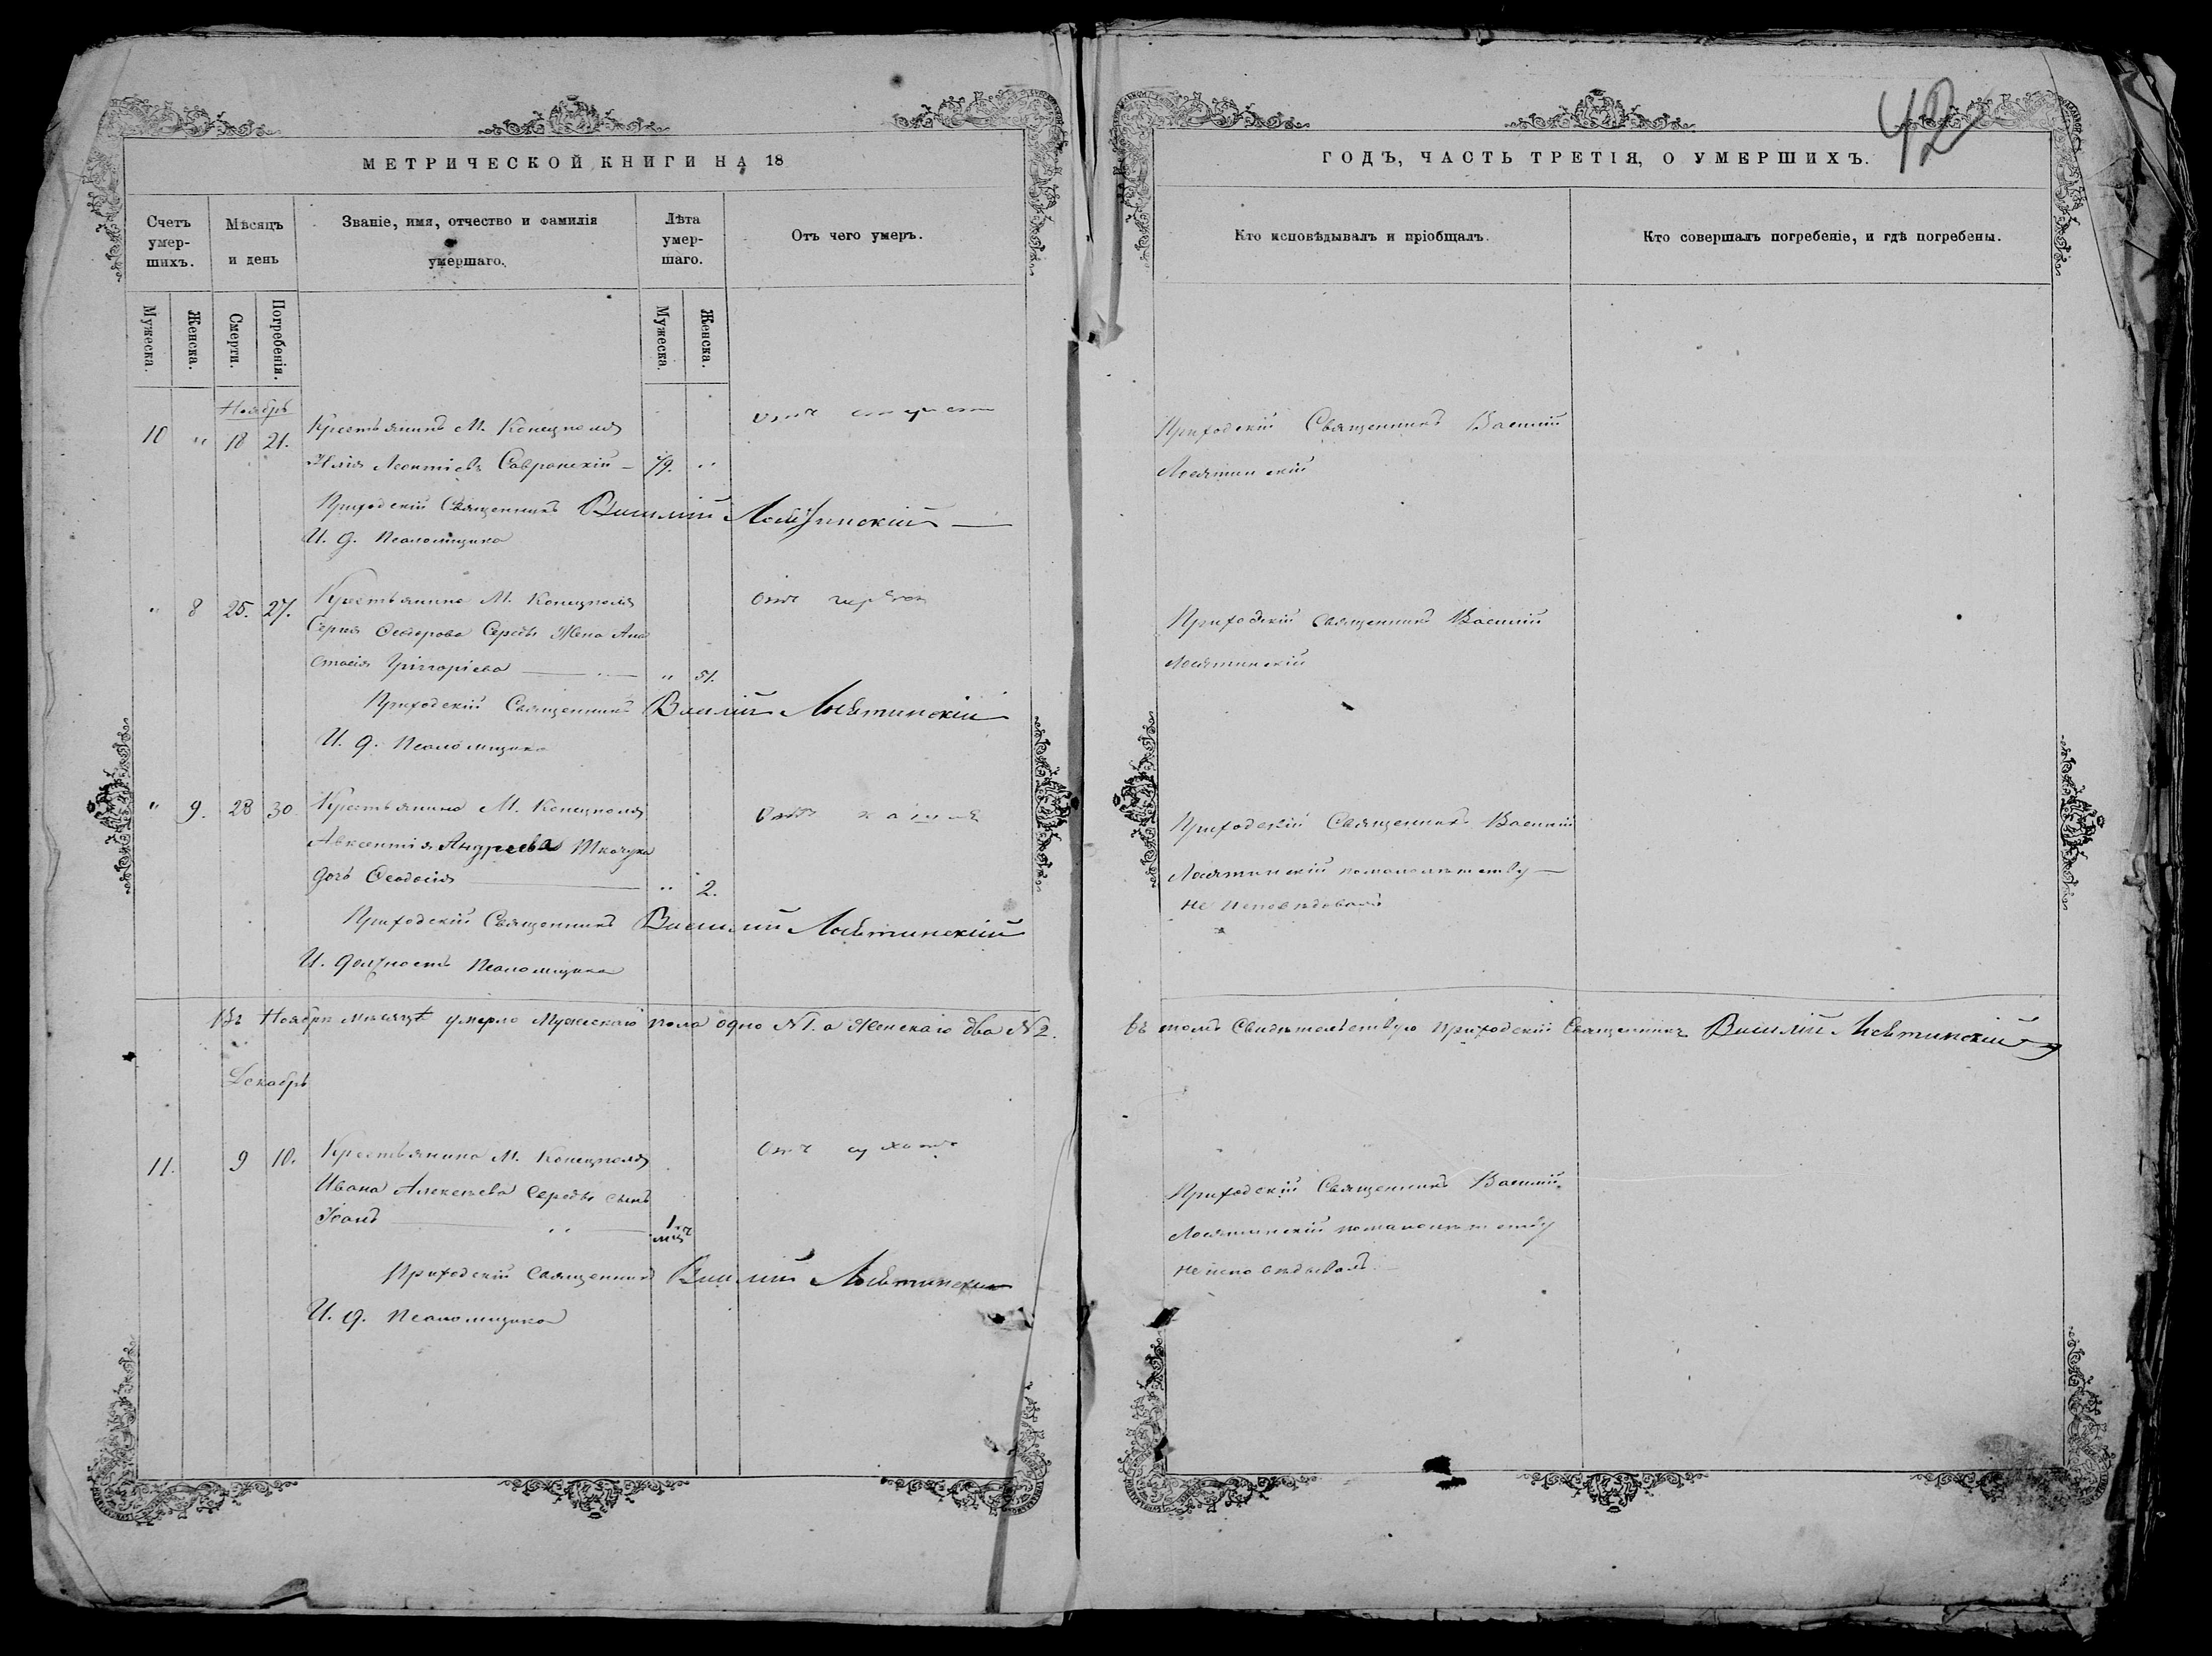 42
МЕТРИЧЕСКОЙ КНИГИ НА 18
ГОДЪ, ЧАСТЬ ТРЕТІЯ, О УМЕРШИХЪ.
Счетъ умер-шихъ.
Мѣсяцъ и день
Званіе, имя, отчество и фамилія умершаго.
Лѣта умер-шаго.
Отъ чего умеръ.
Кто исповѣдывалъ и пріобщалъ.
Кто совершалъ погребеніе, и гдѣ погребены.
Мужеска.
Женска.
Смерти.
Погребенія.
Мужеска.
Женска.
Ноябрь
10 " 18 21. Крестьянинъ М. Конецполя
Илія Леонтіевъ Савранскій — 79. "
Отъ старости
Приходскій Священникъ Василій
Лосятинскій
Приходскій Священникъ Василій Лосятинскій
И. д. Псаломщика
" 8 25. 27. Крестьянина М. Конецполя
Сергія Феодорова Середы Жена Ана
стасія Григоріева " 51.
Отъ
Приходскій Священникъ Василій
Лосятинскій
Приходскій Священникъ Василій Лосятинскій
И. д. Псаломщика
" 9. 28 30. Крестьянина М. Конецполя
Авксентія Андреева Ткачука
дочь Феодосія " 2.
Отъ кашля
Приходскій Священникъ Василій
Лосятинскій помалолѣтству
не исповѣдовалъ
Приходскій Священникъ Василій Лосятинскій
И. должность Псаломщика
Въ Ноябрѣ мѣсяцѣ умерло Мужескаго пола одно №1. а Женскаго два №2.
въ томъ Свидѣтельствую Приходскій Священникъ Василій Лосятинскій
Декабрь
11. 9 10. Крестьянина М. Конецполя
Ивана Алексѣева Середы сынъ
Іоанъ " 1 мѣс
Отъ сухотъ
Приходскій Священникъ Василій
Лосятинскій помалолѣтству
не исповѣдывалъ
Приходскій Священникъ Василій Лосятинскій
И. д. Псаломщика